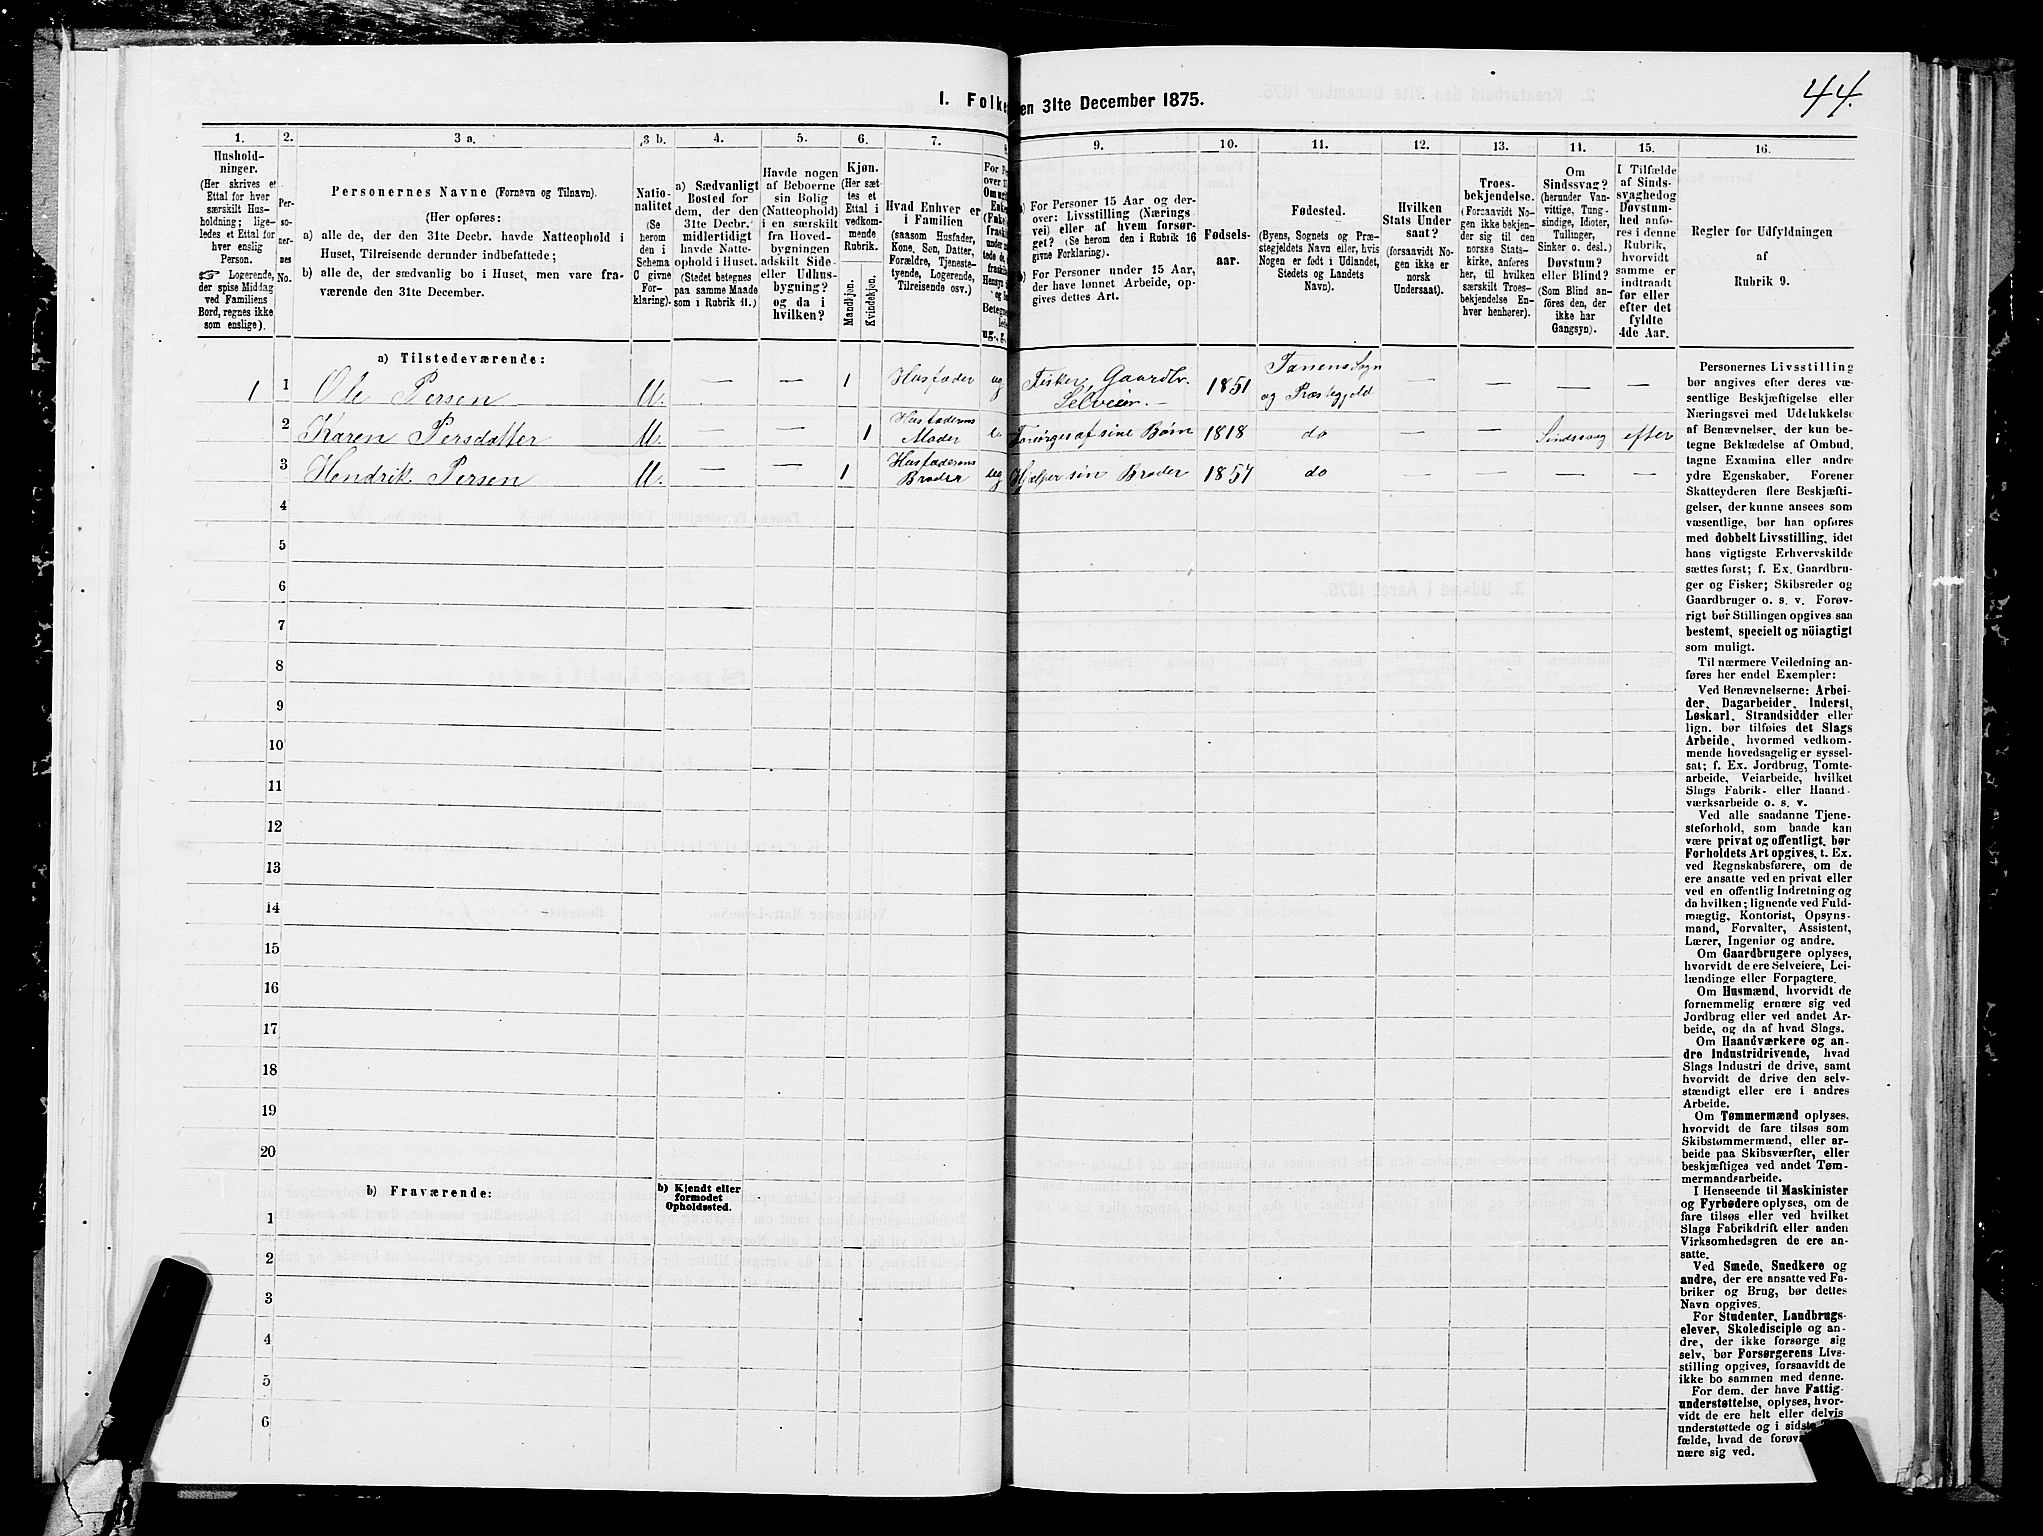 44.
I. Folke en 31te December 1875.
1.
2.
3 a.
3 b.
4.
5.
6.
7.
8
9.
10.
11.
12.
13.
14.
15.
16.
Hushold-
ninger.
(Her skrives et
Ettal for hver
særskilt Hus-
holdning; lige-
ledes et Ettal for
hver enslig
Person.
☞ Logerende,
der spise Middag
ved Familiens
Bord, regnes ikke
som enslige).
Per-
so-
ner-
nes
No.
Personernes Navne (Fornavn og Tilnavn).
(Her opføres:
a) alle de, der den 31te Decbr. havde Natteophold i
Huset, Tilreisende derunder indbefattede;
b) alle de, der sædvanlig bo i Huset, men vare fra-
værende den 31te December.
Natio-
nalitet
(Se
herom
den i
Schema
C givne
For-
klaring).
a) Sædvanligt
Bosted for
dem, der den
31te Decbr.
midlertidigt
havde Natte-
ophold i Huset.
(Stedet betegnes
paa samme Maade
som i Rubrik 11.)
Havde nogen
af Beboerne
sin Bolig
(Natteophold)
i en særskilt
fra Hoved-
bygningen
adskilt Side-
eller Udhus-
bygning?
og da i
hvilken?
Kjøn.
(Her sæt-
tes et
Ettal i
vedkom-
mende
Rubrik.
Mandkjøn.
Kvindekjøn.
Hvad Enhver er
i Familien
(saasom Husfader,
Kone, Søn, Datter,
Forældre, Tjeneste-
tyende, Logerende,
Tilreisende osv.)
ug., g.,
a) For Personer 15 Aar og der-
over: Livsstilling (Nærings
vei) eller af hvem forsør-
get? (Se herom den i Rubrik 16
givne Forklaring).
b) For Personer under 15 Aar,
der have lønnet Arbeide, op-
gives dettes Art.
Fødsels-
aar.
Fødested.
(Byens, Sognets og Præ-
stegjeldets Navn eller, hvis
Nogen er født i Udlandet,
Stedets og Landets
Navn).
Hvilken
Stats Under
saat?
(forsaavidt No-
gen ikke er
norsk
Undersaat).
Troes-
bekjendelse.
(Forsaavidt No-
gen ikke bekjen-
der sig til den
norske Stats-
kirke, anføres
her, til hvilken
særskilt Troes-
bekjendelse En-
hver henhører).
Om
Sindssvag?
(herunder Van-
vittige, Tung-
sindige, Idioter,
Tullinger,
Sinker o. desl.)
Døvstum?
eller Blind?
(Som Blind an-
føres den, der
ikke har
Gangsyn).
I Tilfælde
af Sinds-
svaghed og
Døvstum-
hed anfø-
res i denne
Rubrik,
hvorvidt
samme er
indtraadt
før eller
efter det
fyldte
4de Aar.
Regler for Udfyldningen
af
Rubrik 9.
a) Tilstedeværende:
1 1 Ole Persen U. — — 1 Husfader ug Fisker, Gaardbr. Selveier. — 1851 Tanens Sogn og Præstegjeld — — — —
2 Karen Persdatter U. — — 1 Husfaderens Moder e. Forsørges af sine Børn 1818 do — — Sindssvag efter
3 Hendrik Persen U. — — 1 Husfaderens Broder ug Hjælper sin Broder 1857 do — — — —
4
5
6
7
8
9
10
11
12
13
14
15
16
17
18
19
20
b) Fraværende:
b) Kjendt eller
formodet
Opholdssted.
1
2
3
4
5
6
Personernes Livsstilling
bør angives efter deres væ-
sentlige Beskjæftigelse eller
Næringsvei med Udelukkelse
af Benævnelser, der kun be-
tegne Beklædelse af Ombud,
tagne Examina eller andre
ydre Egenskaber. Forener
Skatteyderen flere Beskjæfti-
gelser, der kunne ansees som
væsentlige, bør han opføres
med dobbelt Livsstilling, idet
hans vigtigste Erhvervskilde
sættes først; f. Ex. Gaardbru-
ger og Fisker; Skibsreder og
Gaardbruger o. s. v. Forøv-
rigt bør Stillingen opgives saa
bestemt, specielt og nöiagtigt
som muligt.
Til nærmere Veiledning an-
føres her endel Exempler:
Ved Benævnelserne: Arbei-
der, Dagarbeider, Inderst,
Løskarl, Strandsidder eller
lign. bør tilføies det Slags
Arbeide, hvormed vedkom-
mende hovedsagelig er syssel-
sat; f. Ex. Jordbrug, Tomte-
arbeide, Veiarbeide, hvilket
Slags Fabrik- eller Haand-
værksarbeide o. s. v.
Ved alle saadanne Tjene-
steforhold, som baade kan
være privat og offentligt, bør
Forholdets Art opgives, t. Ex.
ved Regnskabsførere, om de
ere ansatte ved en privat eller
ved en offentlig Indretning og
da hvilken; lignende ved Fuld-
mægtig, Kontorist, Opsyns-
mand, Forvalter, Assistent,
Lærer, Ingeniør og andre.
Om Gaardbrugere oplyses,
hvorvidt de ere Selveiere, Lei-
lændinge eller Forpagtere.
Om Husmænd, hvorvidt de
fornemmelig ernære sig ved
Jordbrug eller ved andet Ar-
beide, og da af hvad Slags.
Om Haandværkere og an-
dre Industridrivende, hvad
Slags Industri de drive, samt
hvorvidt de drive den selv-
stændigt eller ere i andres
Arbeide.
Om Tømmermænd oplyses,
hvorvidt de fare tilsøs som
Skibstømmermænd, eller ar-
beide paa Skibsværfter, eller
beskjæftiges ved andet Tøm-
mermandsarbeide.
I Henseende til Maskinister
og Fyrbødere oplyses, om de
fare tilsøs eller ved hvilket
Slags Fabrikdrift eller anden
Virksomhedsgren de ere an-
satte.
Ved Smede, Snedkere og
andre, der ere ansatte ved Fa-
briker og Brug, bør dettes
Navn opgives.
For Studenter, Landbrugs-
elever, Skoledisciple og an-
dre, der ikke forsørge sig
selv, bør Forsørgerens Livs-
stilling opgives, forsaavidt de
ikke bo sammen med denne.
For dem, der have Fattig-
understøttelse, oplyses, hvor-
vidt de ere helt eller delvis
understøttede og i sidste
fælde, hvad de forøv
nære sig ved.